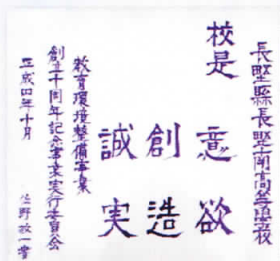 長野縣長野南高等學校
校是
意欲
創造
誠実
教育環境整備事業
創立十周年記念事業実行委員会
平成四年十月
佐野政一書